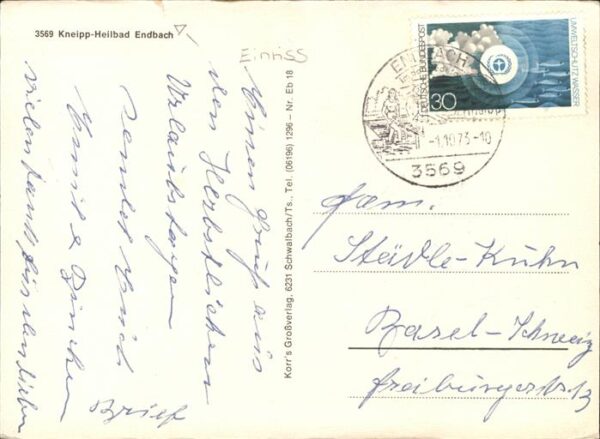 3569 Kneipp-Heilbad Endbach
Einriss
Einen Gruß aus
den Herbstlichen
Urlaubstagen
sendet Euch
&
Vielen Dank für den lieben
Brief
Korr's Großverlag, 6231 Schwalbach/Ts., Tel. (06196) 1296 – Nr. Eb 18
DEUTSCHE BUNDESPOST
30
UMWELTSCHUTZ: WASSER
ENDBACH
-1.10.73-10
3569
Fam.
Städle-Kuhn
Basel-Schweiz
Freiburgerstr 13